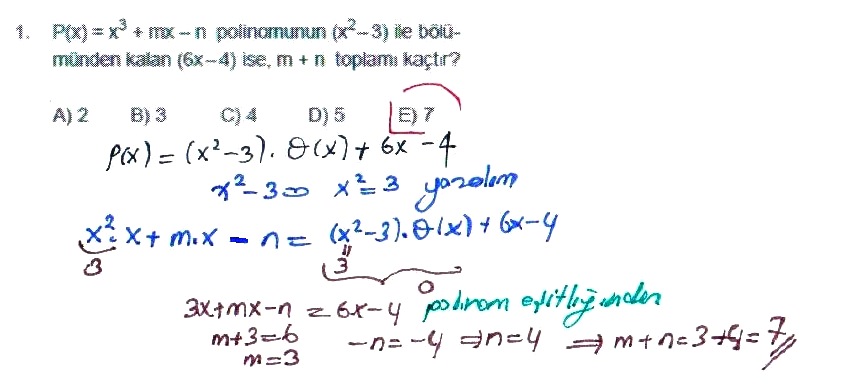 1. P(x) = x³ + mx – n polinomunun (x² – 3) ile bölü-
münden kalan (6x – 4) ise, m + n toplamı kaçtır?
A) 2 B) 3 C) 4 D) 5 E) 7
P(x) = (x² – 3). Q(x) + 6x – 4
x² – 3 = 0 x² = 3 yazalım
x². x + m.x – n = (x² – 3). Q(x) + 6x – 4
3 3
0
3x + mx – n = 6x – 4 polinom eşitliğinden
m + 3 = 6 –n = –4 ⇒ n = 4 ⇒ m + n = 3 + 4 = 7
m = 3